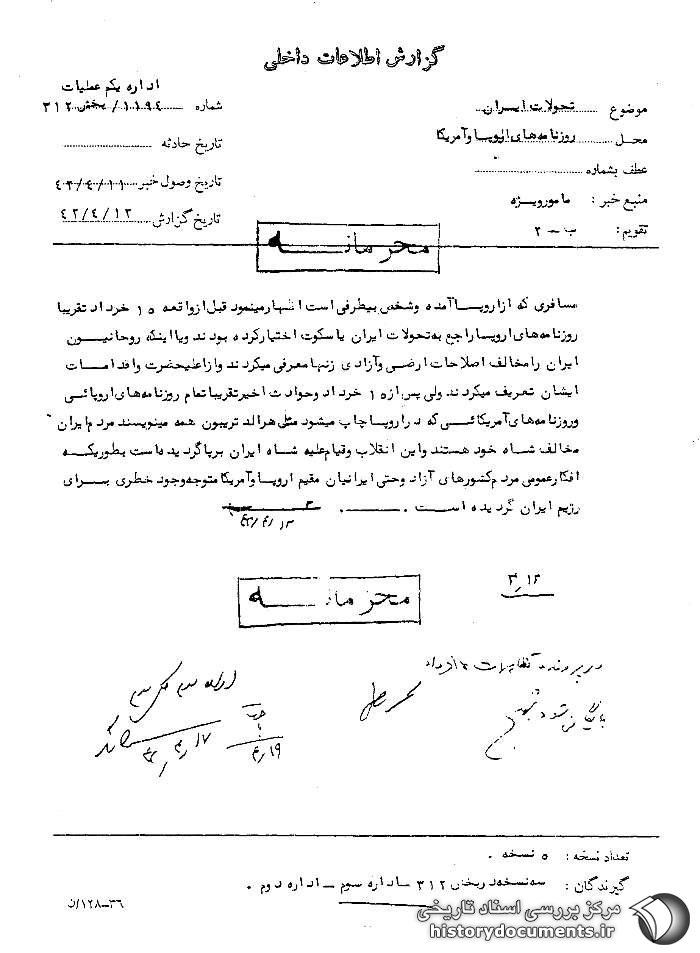 گزارش اطلاعات داخلی
اداره یکم عملیات
موضوع تحولات ایران
شماره ۱۱۹٤ / بخش ۳۱۲
محل روزنامه‌های اروپا و آمریکا
تاریخ حادثه
عطف بشماره
تاریخ وصول خبر ٤۲/٤/۱۱
منبع خبر : مامور ویژه
تاریخ گزارش ٤۲/٤/۱۲
تقویم : ب - ۲
محرمانه
مسافری که از اروپا آمده و شخص بیطرفی است اظهار مینمود قبل از واقعه ۱۵ خرداد تقریبا
روزنامه‌های اروپا راجع به تحولات ایران یا سکوت اختیار کرده بودند و یا اینکه روحانیون
ایران را مخالف اصلاحات ارضی و آزادی زنها معرفی میکردند و از اعلیحضرت و اقدامات
ایشان تعریف میکردند ولی پس از ۱۵ خرداد و حوادث اخیر تقریبا تمام روزنامه‌های اروپائی
و روزنامه‌های آمریکائی که در اروپا چاپ میشود مثل هرالد تریبون همه مینویسند مردم ایران
مخالف شاه خود هستند و این انقلاب و قیام علیه شاه ایران برپا گردیده است بطوریکه
افکار عمومی مردم کشورهای آزاد و حتی ایرانیان مقیم اروپا و آمریکا متوجه وجود خطری برای
رژیم ایران گردیده است .
محرمانه
در پرونده
بایگانی شود
تعداد نسخه : ۵ نسخه .
گیرندگان : سه نسخه در بخش ۳۱۲ - اداره سوم - اداره دوم .
۳۶-۱۲۸/ن
مرکز بررسی اسناد تاریخی
historydocuments.ir